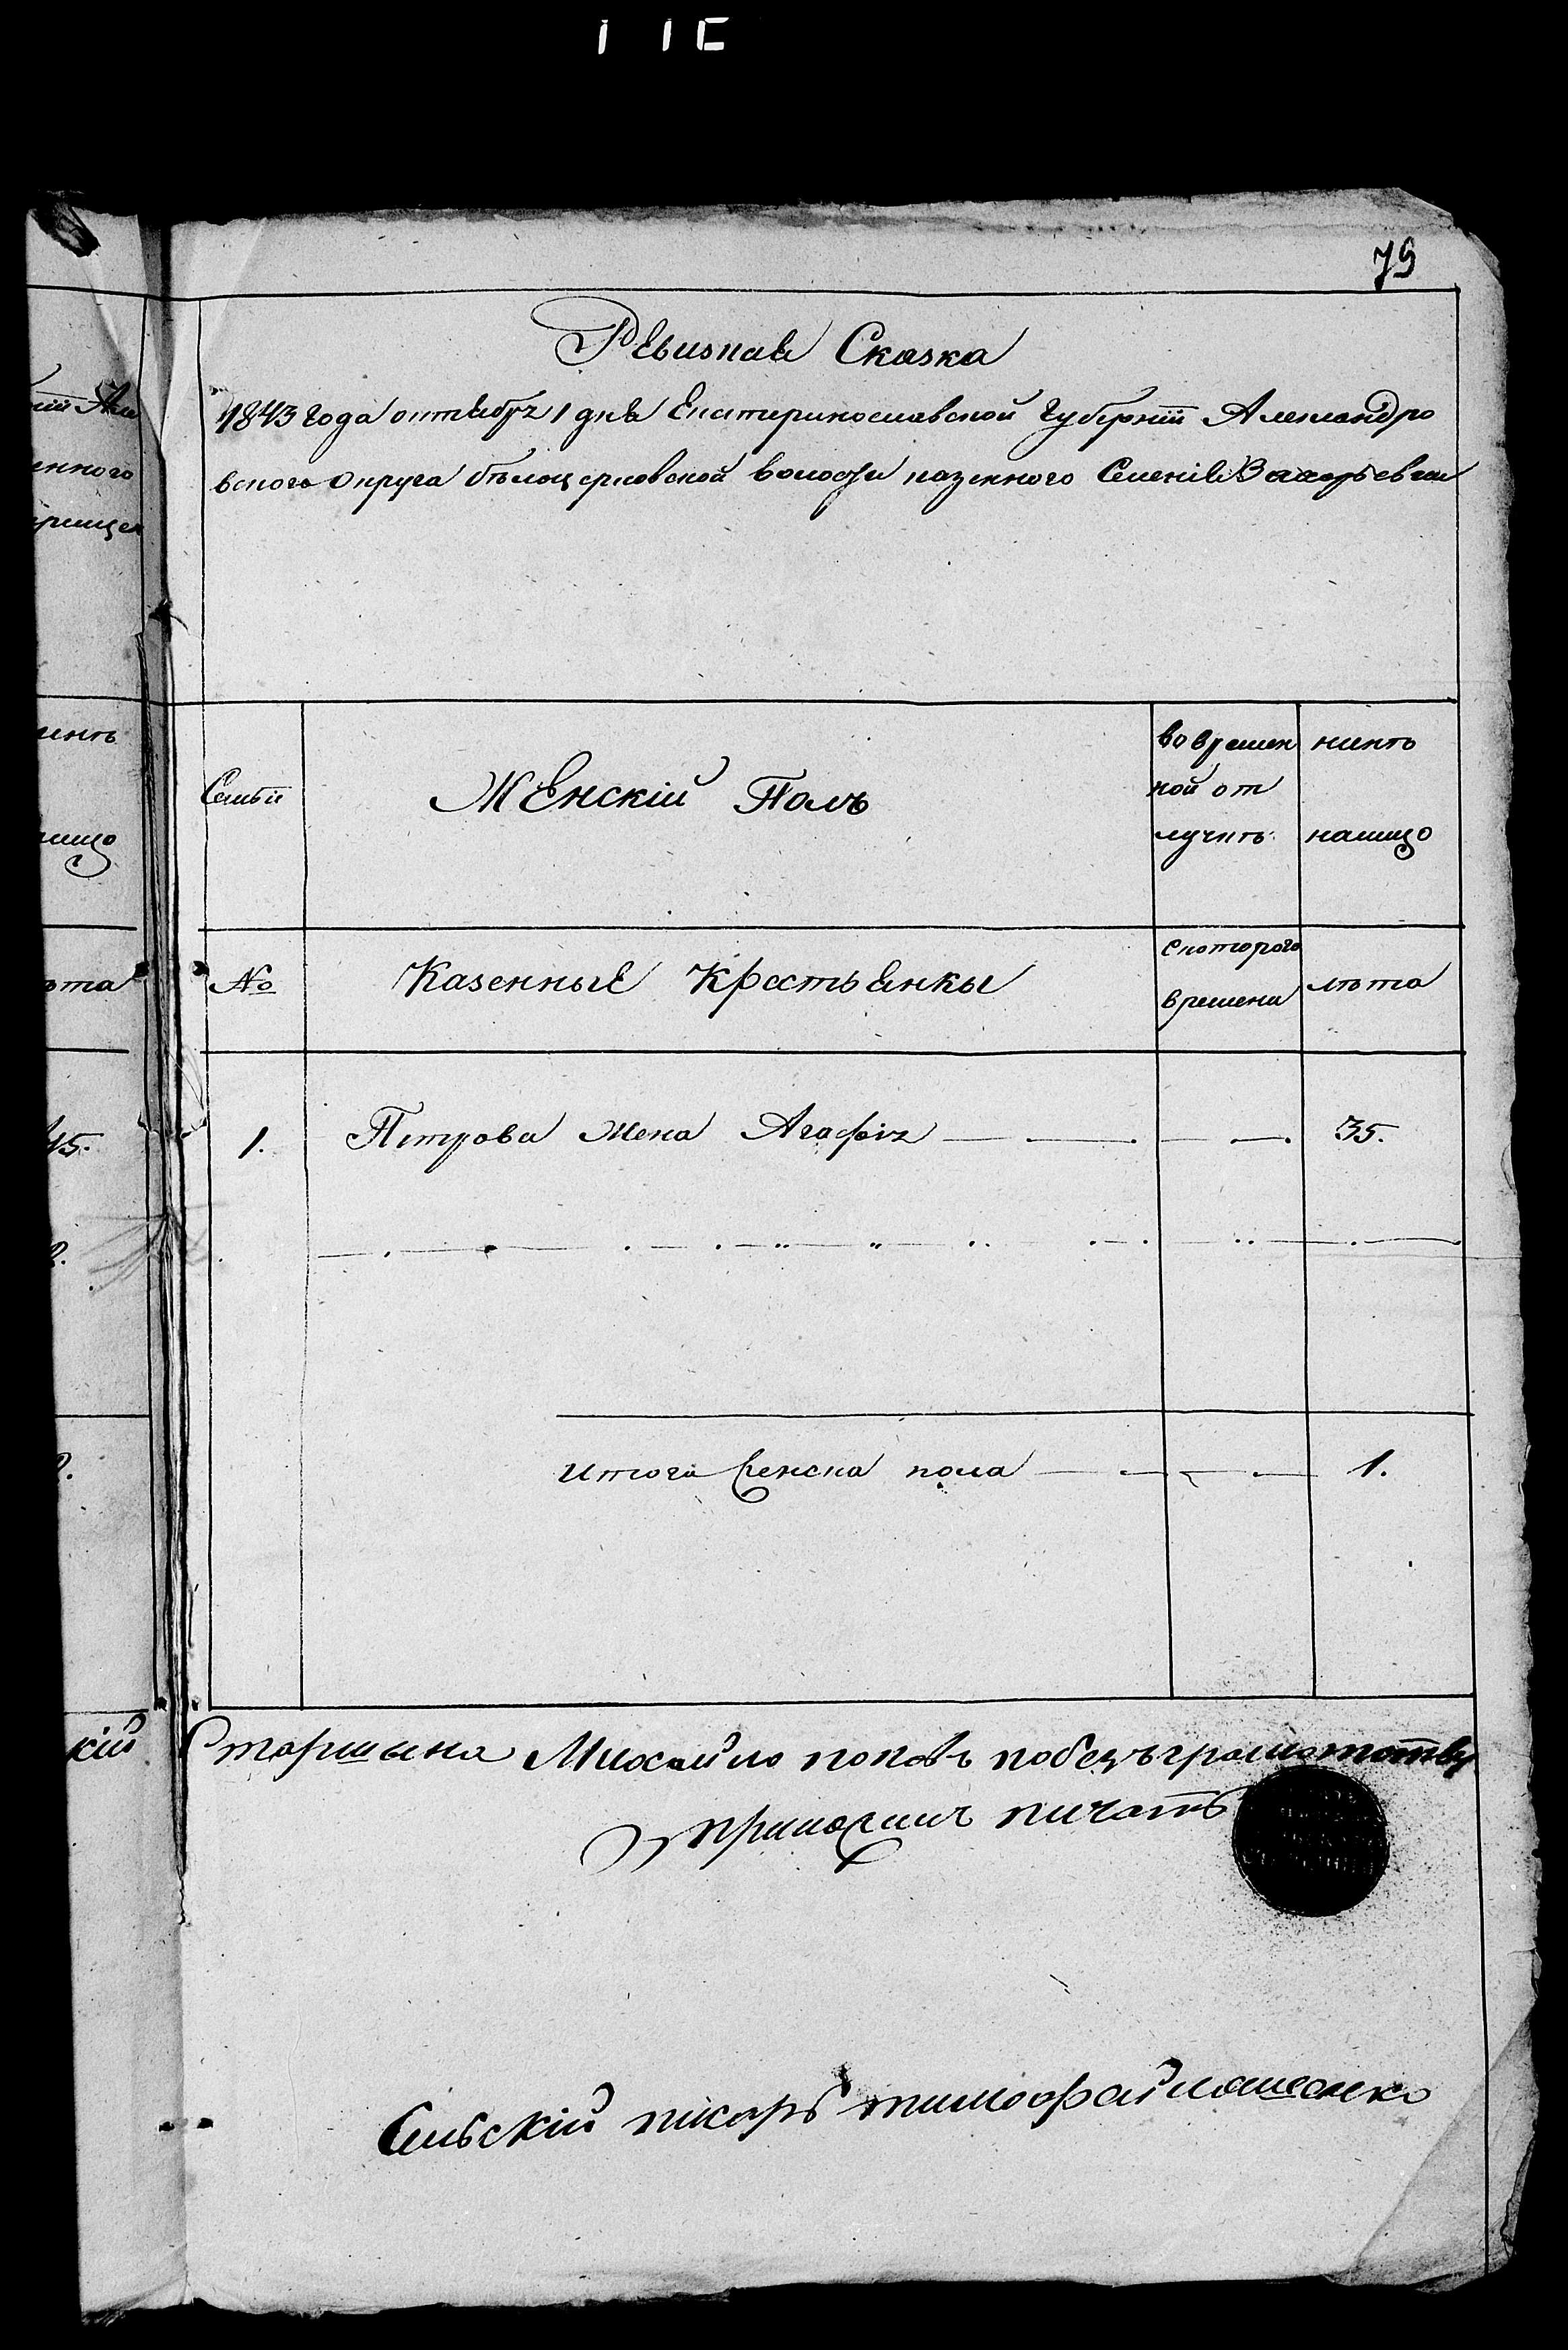 79
Ревизная Сказка
1843 года октября 1 дня Екатеринославской губернии Александро
вского округа бѣлоцерковской волости казенного Селения Захарьевки
Семьи
Женскій Полъ
во времен
ной от
лучкѣ
нинѣ
налицо
№
Казенные Крестьянкы
с которого
времени
лѣта
1. Петрова жена Агафія 35.
Итого женска пола 1.
Старшына Михайло попов по безъграмотству
приложил пичать
Сельскій писарь тимофай
енного
ота
45.
кій